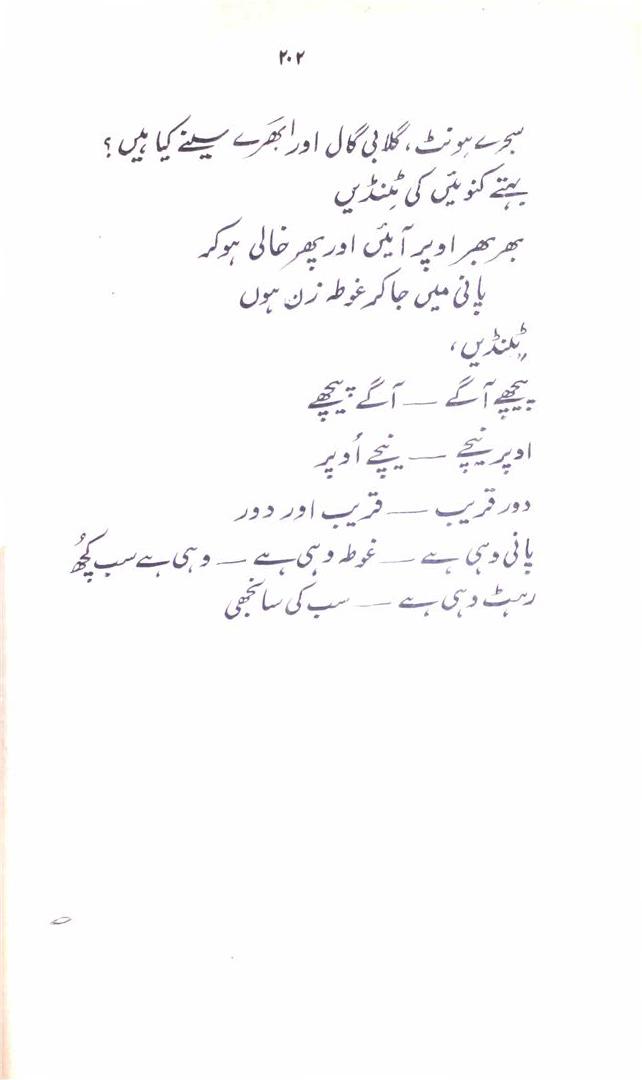 ۲۰۲
سجرے ہونٹ، گلابی گال اور ابھَرے سینے کیا ہیں؟
بہتے کنوئیں کی ٹِنڈیں
بھر بھر اوپر آئیں اور پھر خالی ہوکر
پانی میں جاکر غوطہ زن ہوں
ٹِنڈیں،
پیچھے آگے — آگے پیچھے
اوپر نیچے — نیچے اُوپر
دور قریب — قریب اور دور
پانی وہی ہے — غوطہ وہی ہے — وہی ہے سب کچُھ
رہٹ وہی ہے — سب کی سانجھی